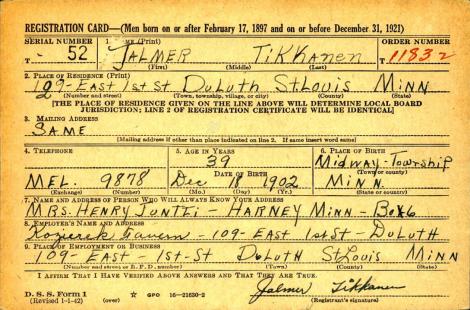 REGISTRATION CARD—(Men born on or after February 17, 1897 and on or before December 31, 1921)
SERIAL NUMBER 1. NAME (Print) ORDER NUMBER
T 52 JALMER TIKKANEN T 11832
(First) (Middle) (Last)
2. PLACE OF RESIDENCE (Print)
East 1st St DULUTH St Louis MINN
(Number and street) (Town, township, village, or city) (County) (State)
[THE PLACE OF RESIDENCE GIVEN ON THE LINE ABOVE WILL DETERMINE LOCAL BOARD
JURISDICTION; LINE 2 OF REGISTRATION CERTIFICATE WILL BE IDENTICAL]
3. MAILING ADDRESS
SAME
[Mailing address if other than place indicated on line 2. If same insert word same]
4. TELEPHONE 5. AGE IN YEARS 6. PLACE OF BIRTH
39 Midway-Township
DATE OF BIRTH (Town or county)
MEL. 9878 Dec 1902 MINN.
(Exchange) (Number) (Mo.) (Day) (Yr.) (State or country)
7. NAME AND ADDRESS OF PERSON WHO WILL ALWAYS KNOW YOUR ADDRESS
MRS. HENRY JUNTTI - HARNEY MINN - BOX 6
8. EMPLOYER'S NAME AND ADDRESS
Tavern - 109- East 1st St - DULUTH
9. PLACE OF EMPLOYMENT OR BUSINESS
109- EAST - 1st-St DULUTH St Louis MINN
(Number and street or R. F. D. number) (Town) (County) (State)
I AFFIRM THAT I HAVE VERIFIED ABOVE ANSWERS AND THAT THEY ARE TRUE.
D. S. S. Form 1
(Revised 1-1-42) (over) ☆ GPO 16—21630-2 Jalmer Tikkanen
(Registrant's signature)